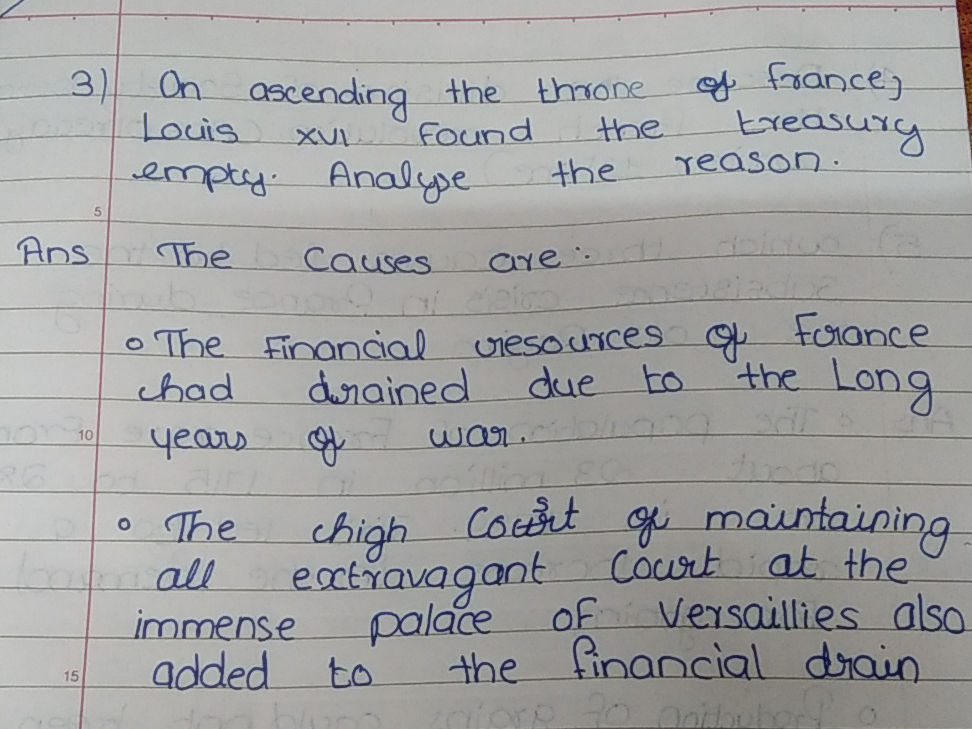 3) On ascending the throne of france,
Louis XVI Found the treasury
empty. Analyse the reason.
5
Ans The causes are :
o The Financial resources of France
had drained due to the Long
10 years of war.
o The high Cost of maintaining
all extravagant Court at the
immense palace of Versaillies also
15 added to the financial drain